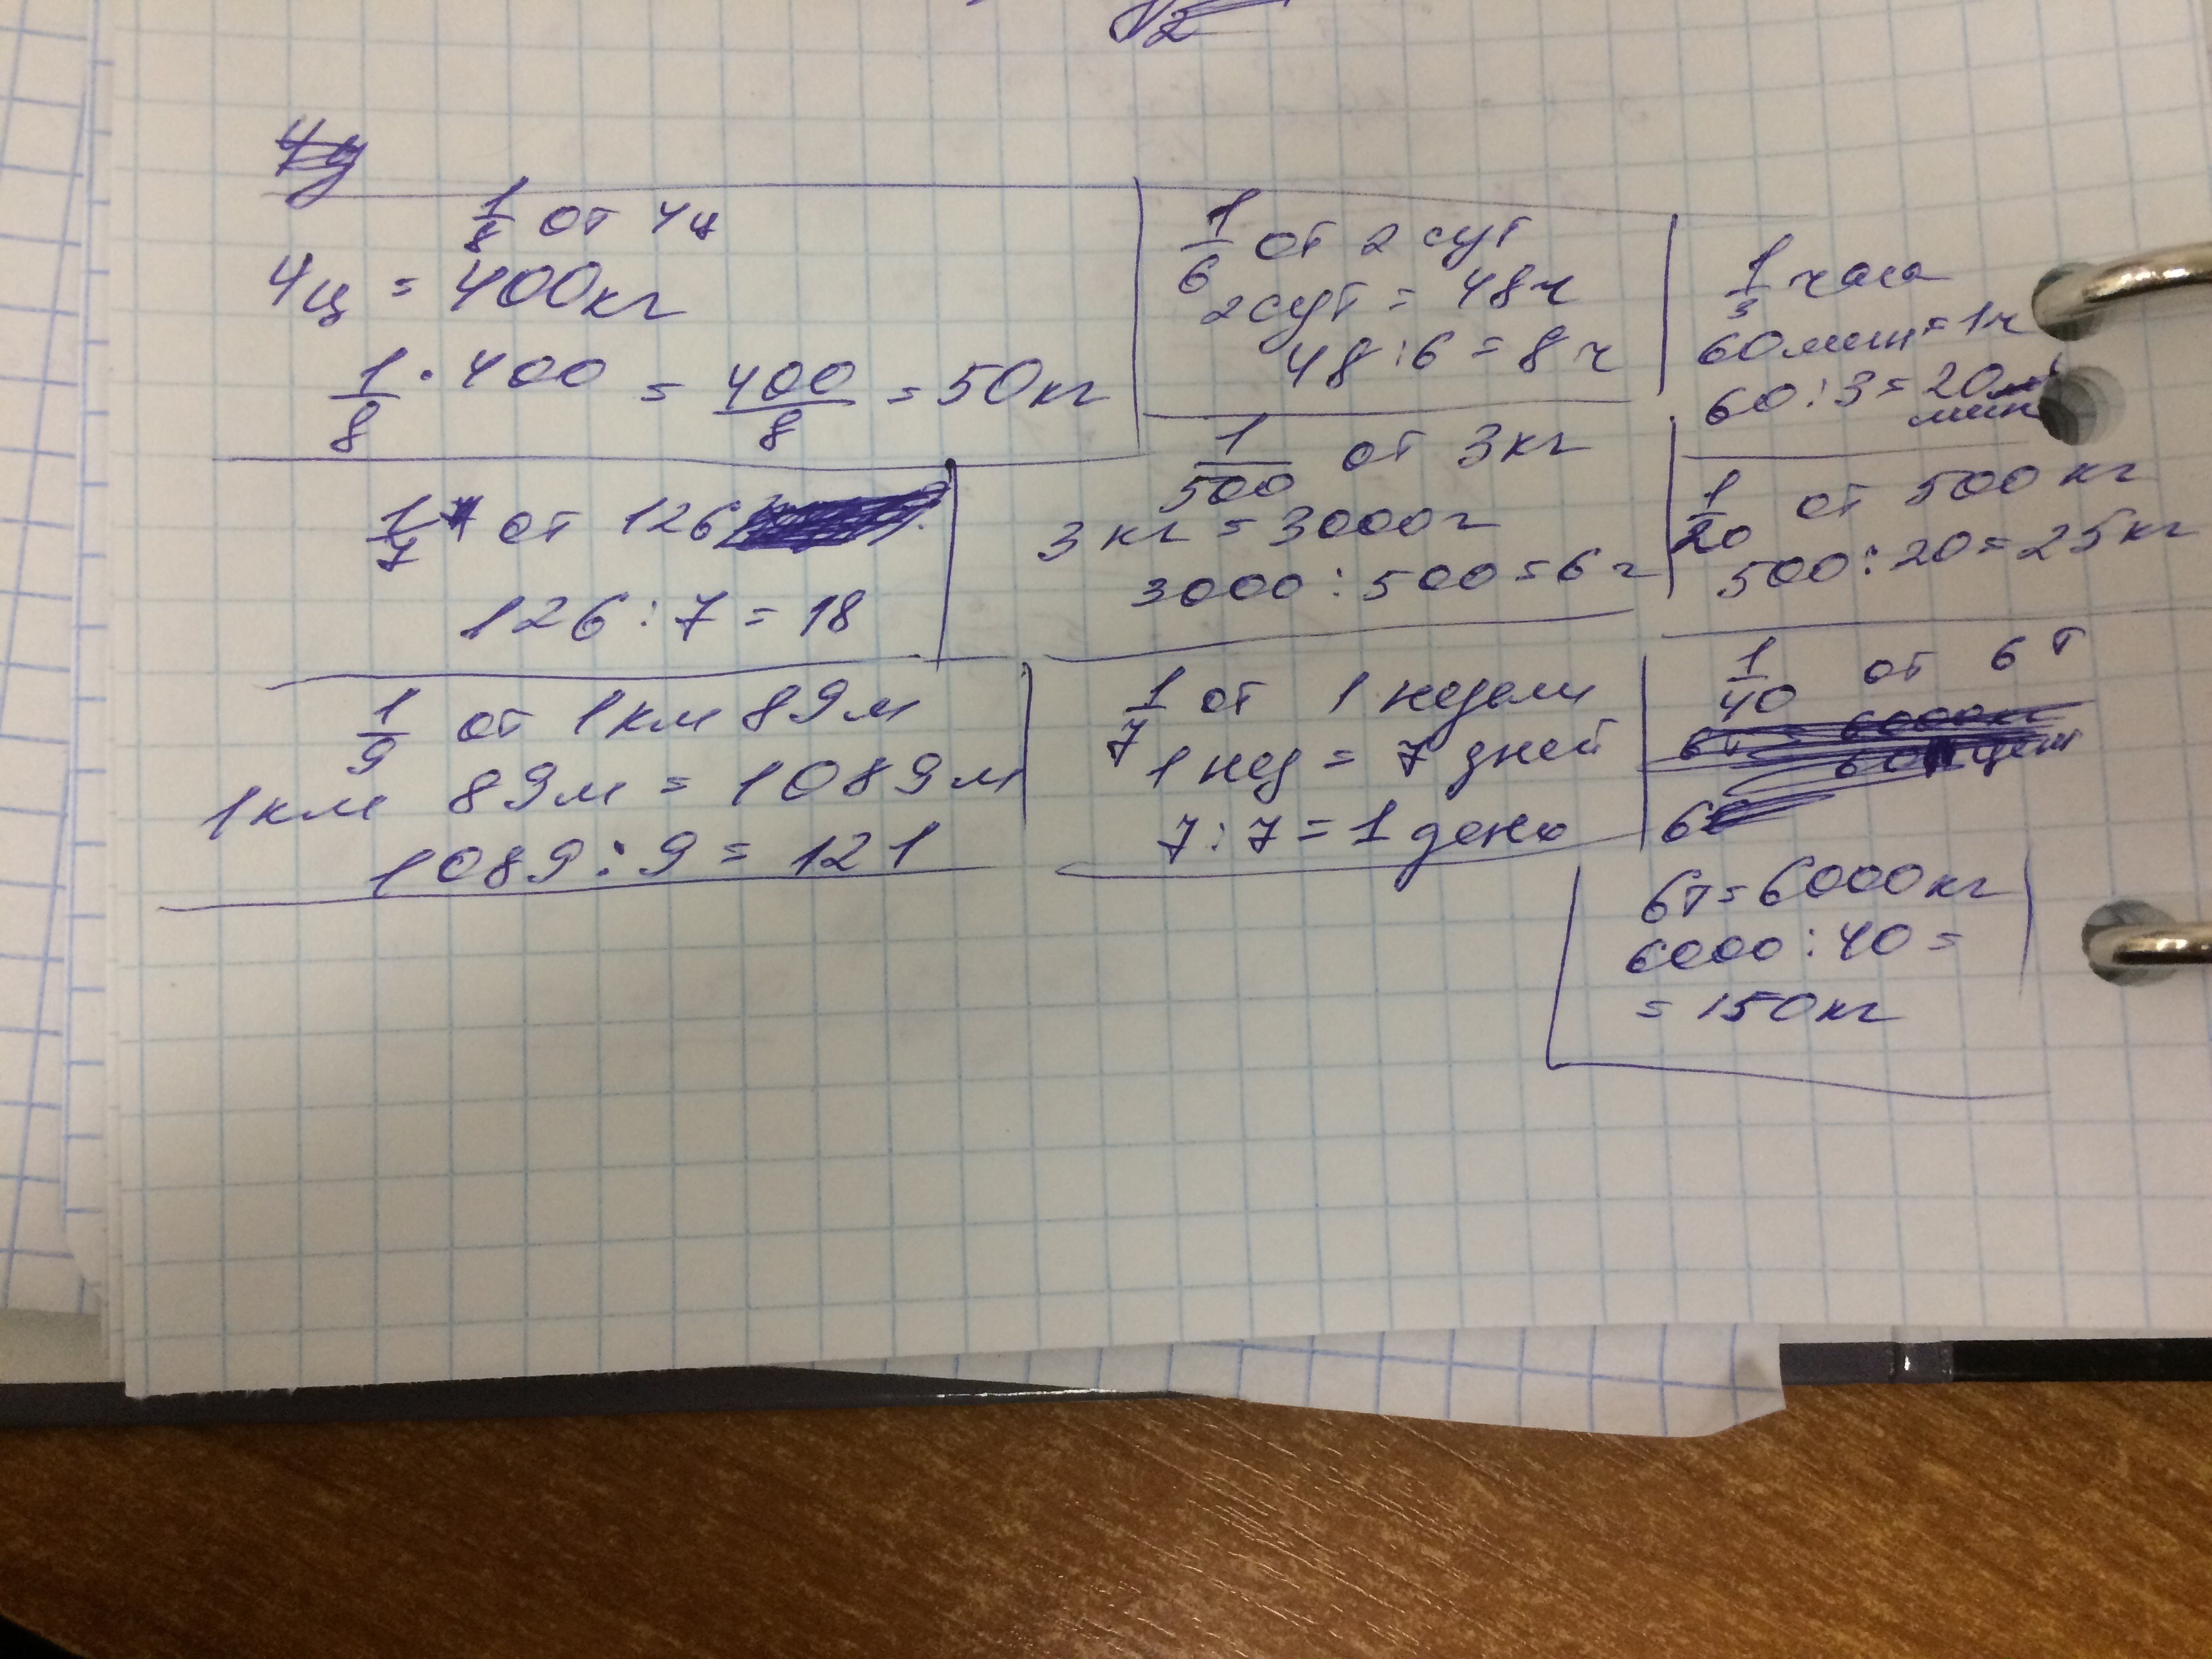 √2
4ц
1/8 от 4ц
4ц = 400кг
1/8 · 400 = 400/8 = 50кг
1/6 от 2 сут
2сут = 48ч
48:6 = 8ч
1/3 часа
60мин = 1ч
60:3 = 20
мин
1/7 от 126
126:7 = 18
1/500 от 3кг
3кг = 3000г
3000:500 = 6г
1/20 от 500кг
500:20 = 25кг
1/9 от 1км 89м
1км 89м = 1089м
1089:9 = 121
1/7 от 1 недели
1нед = 7 дней
7:7 = 1 день
1/40 от 6т
6т = 6000кг
60 цент
6
6т = 6000кг
6000:40 =
= 150кг